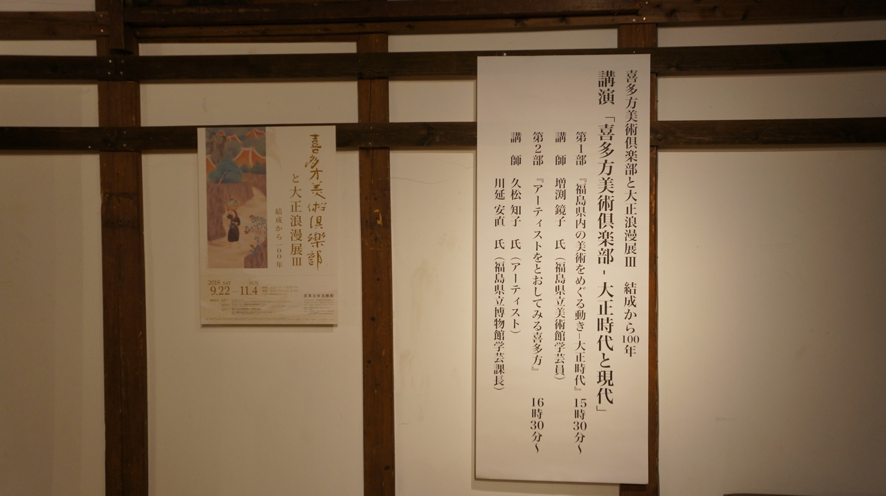 喜多方美術倶楽部と大正浪漫展Ⅲ 結成から100年
講演「喜多方美術倶楽部 - 大正時代と現代」
第1部 『福島県内の美術をめぐる動き−大正時代』 15時30分〜
講師 増渕 鏡子 氏（福島県立美術館学芸員）
第2部 『アーティストをとおしてみる喜多方』 16時30分〜
講師 久松 知子 氏（アーティスト）
川延 安直 氏（福島県立博物館学芸課長）
喜多方美術倶楽部
と大正浪漫展Ⅲ
結成から一〇〇年
9.22 − 11.4